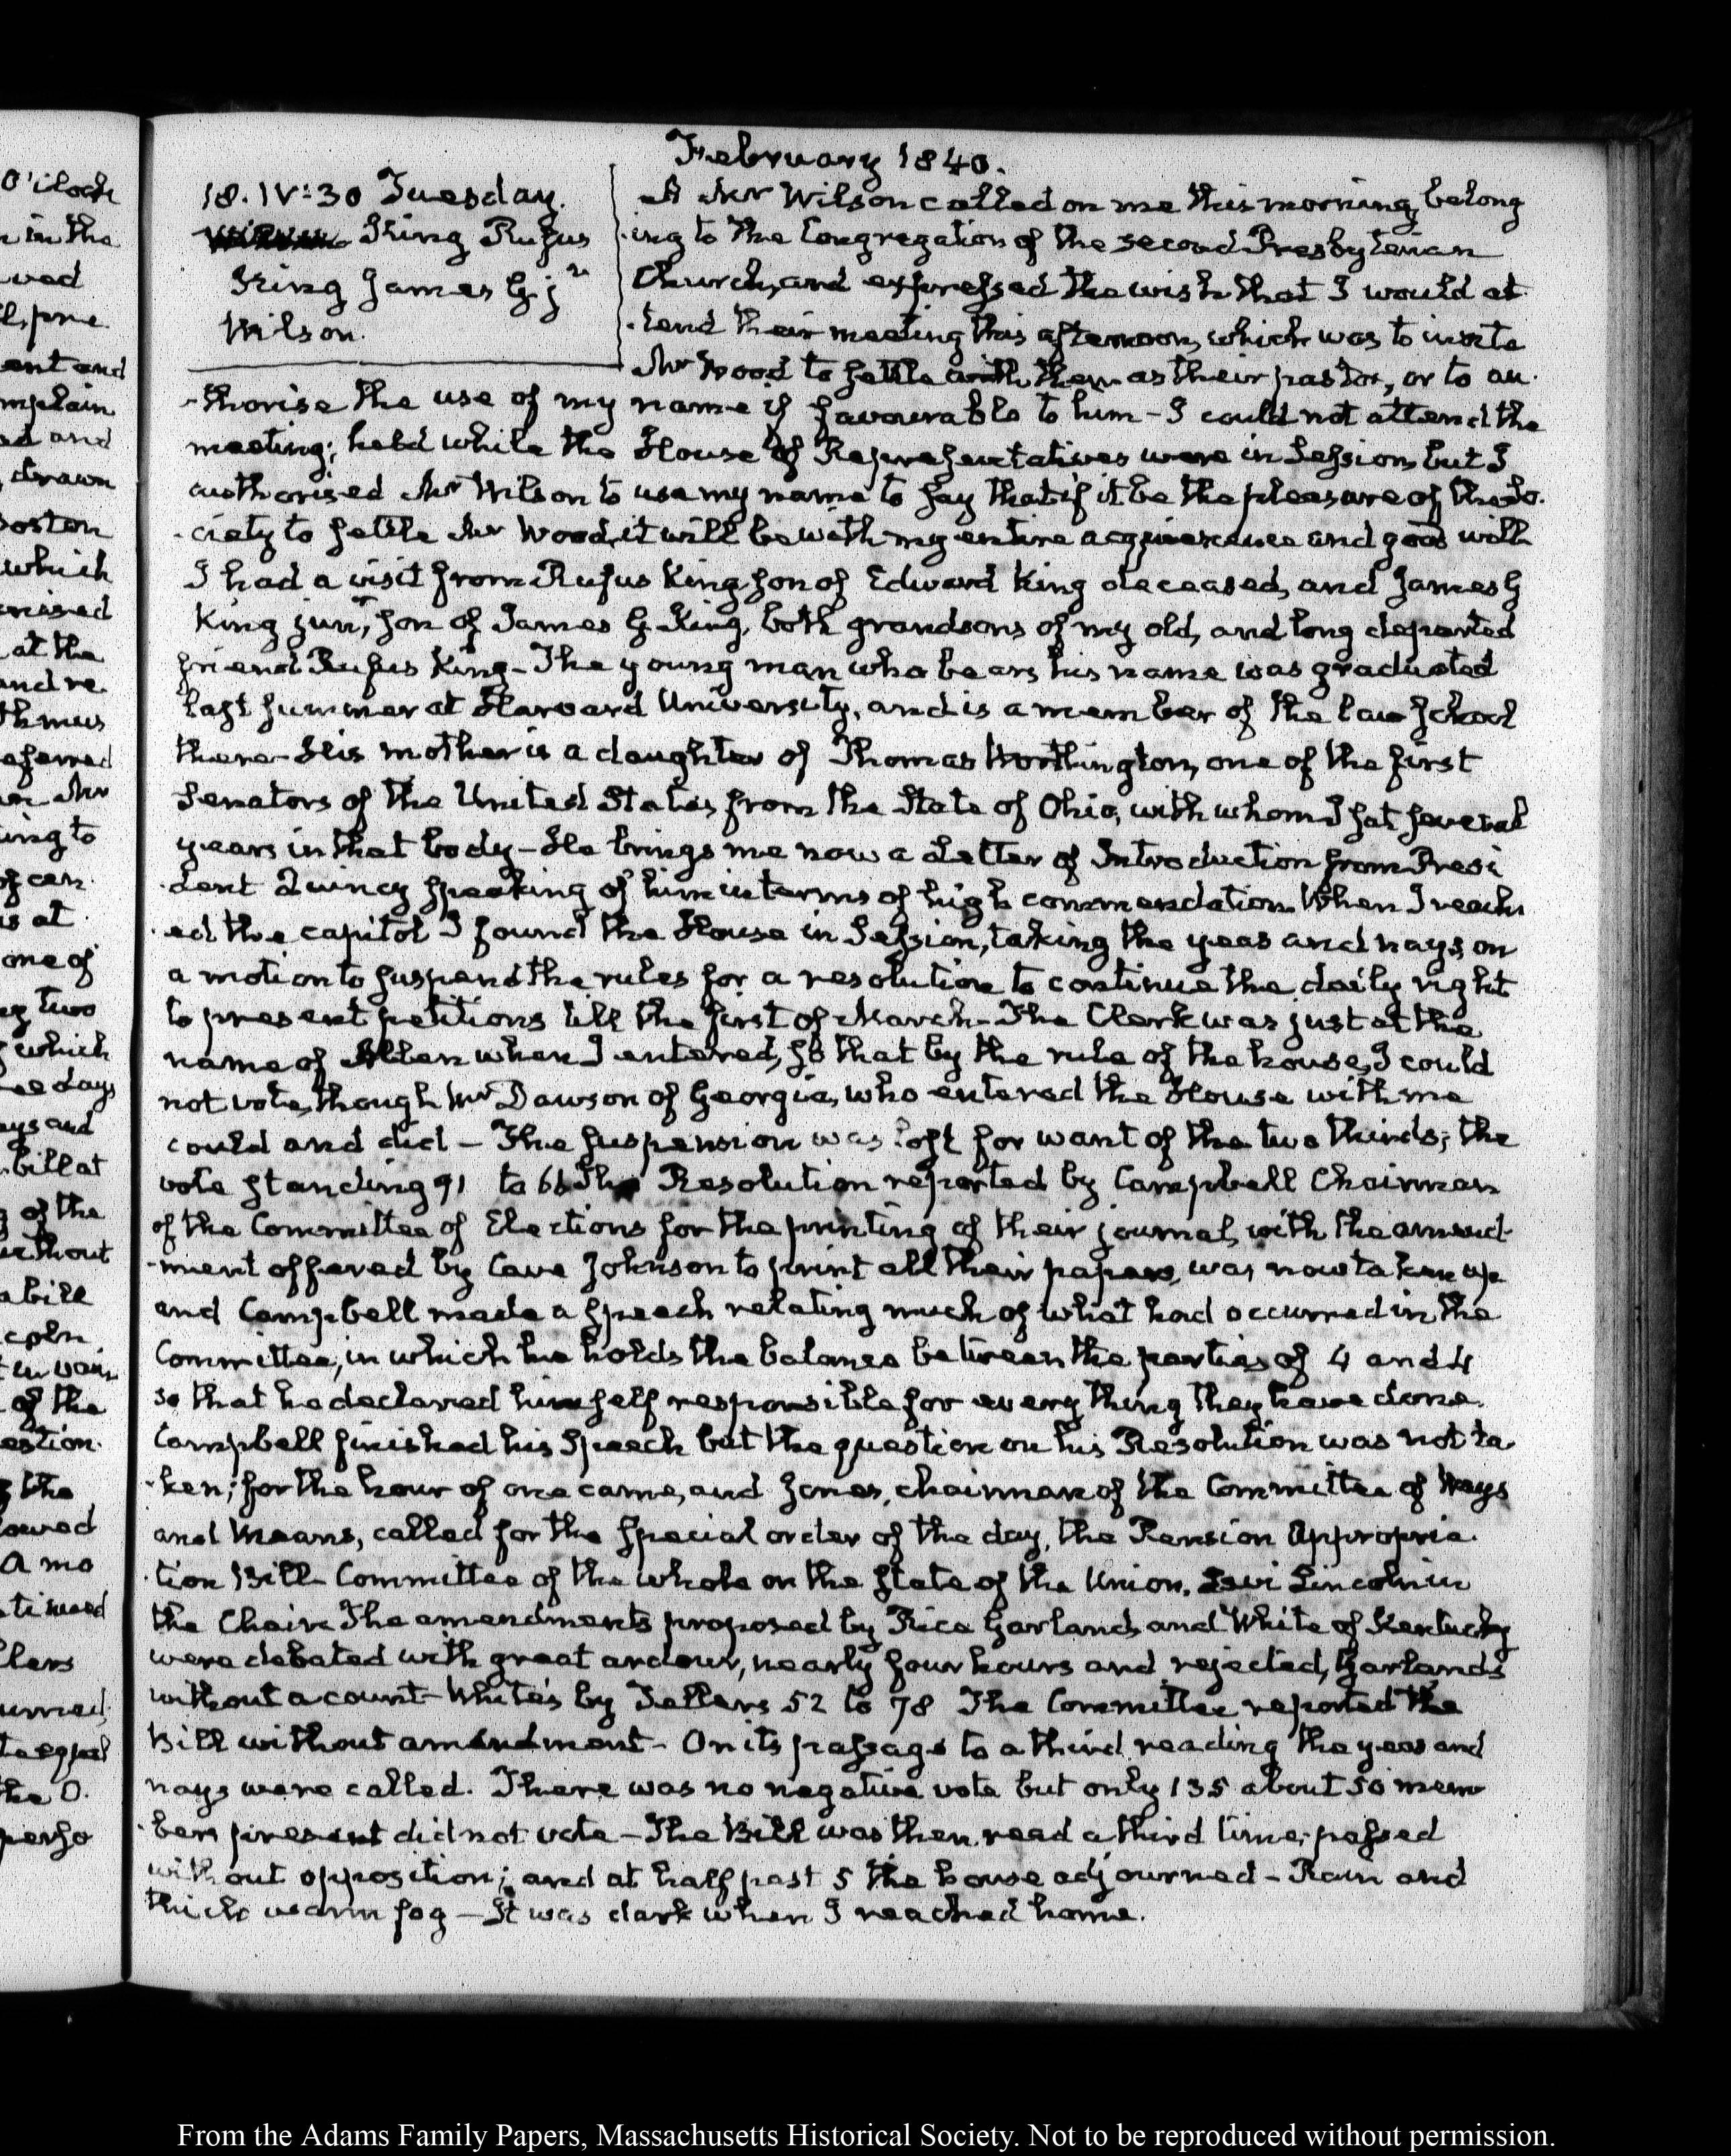 February 1840.
18. IV:30 Tuesday.
King Rufus
King James G jr
Wilson.
A Mr Wilson called on me this morning, belong
-ing to the Congregation of the second Presbyterian
Church, and expressed the wish that I would at
-tend their meeting this afternoon, which was to invite
Mr Wood to settle with them as their pastor, or to au-
-thorise the use of my name if favourable to him - I could not attend the
meeting; held while the House of Representatives were in Session, but I
authorised Mr Wilson to use my name to say that if it be the pleasure of the So-
-ciety to settle Mr Wood, it will be with my entire acquiescence and good will
I had a visit from Rufus King son of Edward King deceased, and James G
King junr, son of James G King, both grandsons of my old, and long departed
friend Rufus King - The young man who bears his name was graduated
last summer at Harvard University, and is a member of the law School
there - His mother is a daughter of Thomas Worthington, one of the first
Senators of the United States, from the State of Ohio, with whom I sat several
years in that body - He brings me now a Letter of Introduction from Presi
-dent Quincy speaking of him in terms of high commendation. When I reach
-ed the capitol I found the House in Session, taking the yeas and nays, on
a motion to suspend the rules for a resolution to continue the daily right
to present petitions till the first of March - The Clerk was just at the
name of Allen when I entered, so that by the rule of the house, I could
not vote, though Mr Dawson of Georgia, who entered the House with me
could and did - The suspension was lost for want of the two thirds; the
vote standing 91 to 66 The Resolution reported by Campbell Chairman
of the Committee of Elections for the printing of their journal, with the amend-
-ment offered by Cave Johnson to print all their papers, was now taken up
and Campbell made a speech relating much of what had occurred in the
Committee, in which he holds the balance between the parties of 4 and 4
so that he declared himself responsible for every thing they have done.
Campbell finished his Speech but the question on his Resolution was not ta-
-ken; for the hour of one came, and Jones, chairman of the Committee of Ways
and Means, called for the special order of the day, the Pension Appropria-
-tion Bill - Committee of the whole on the state of the Union, Levi Lincoln in
the Chair. The amendments proposed by Rice Garland, and White of Kentucky
were debated with great ardour, nearly four hours and rejected, Garland's
without a count - White's by Tellers 52 to 78 The Committee reported the
Bill without amendment - On its passage to a third reading the yeas and
nays were called. There was no negative vote but only 135 about 50 mem
-bers present did not vote - The Bill was then read a third time, passed
without opposition; and at half past 5 the house adjourned - Rain and
thick warm fog - It was dark when I reached home.
From the Adams Family Papers, Massachusetts Historical Society. Not to be reproduced without permission.